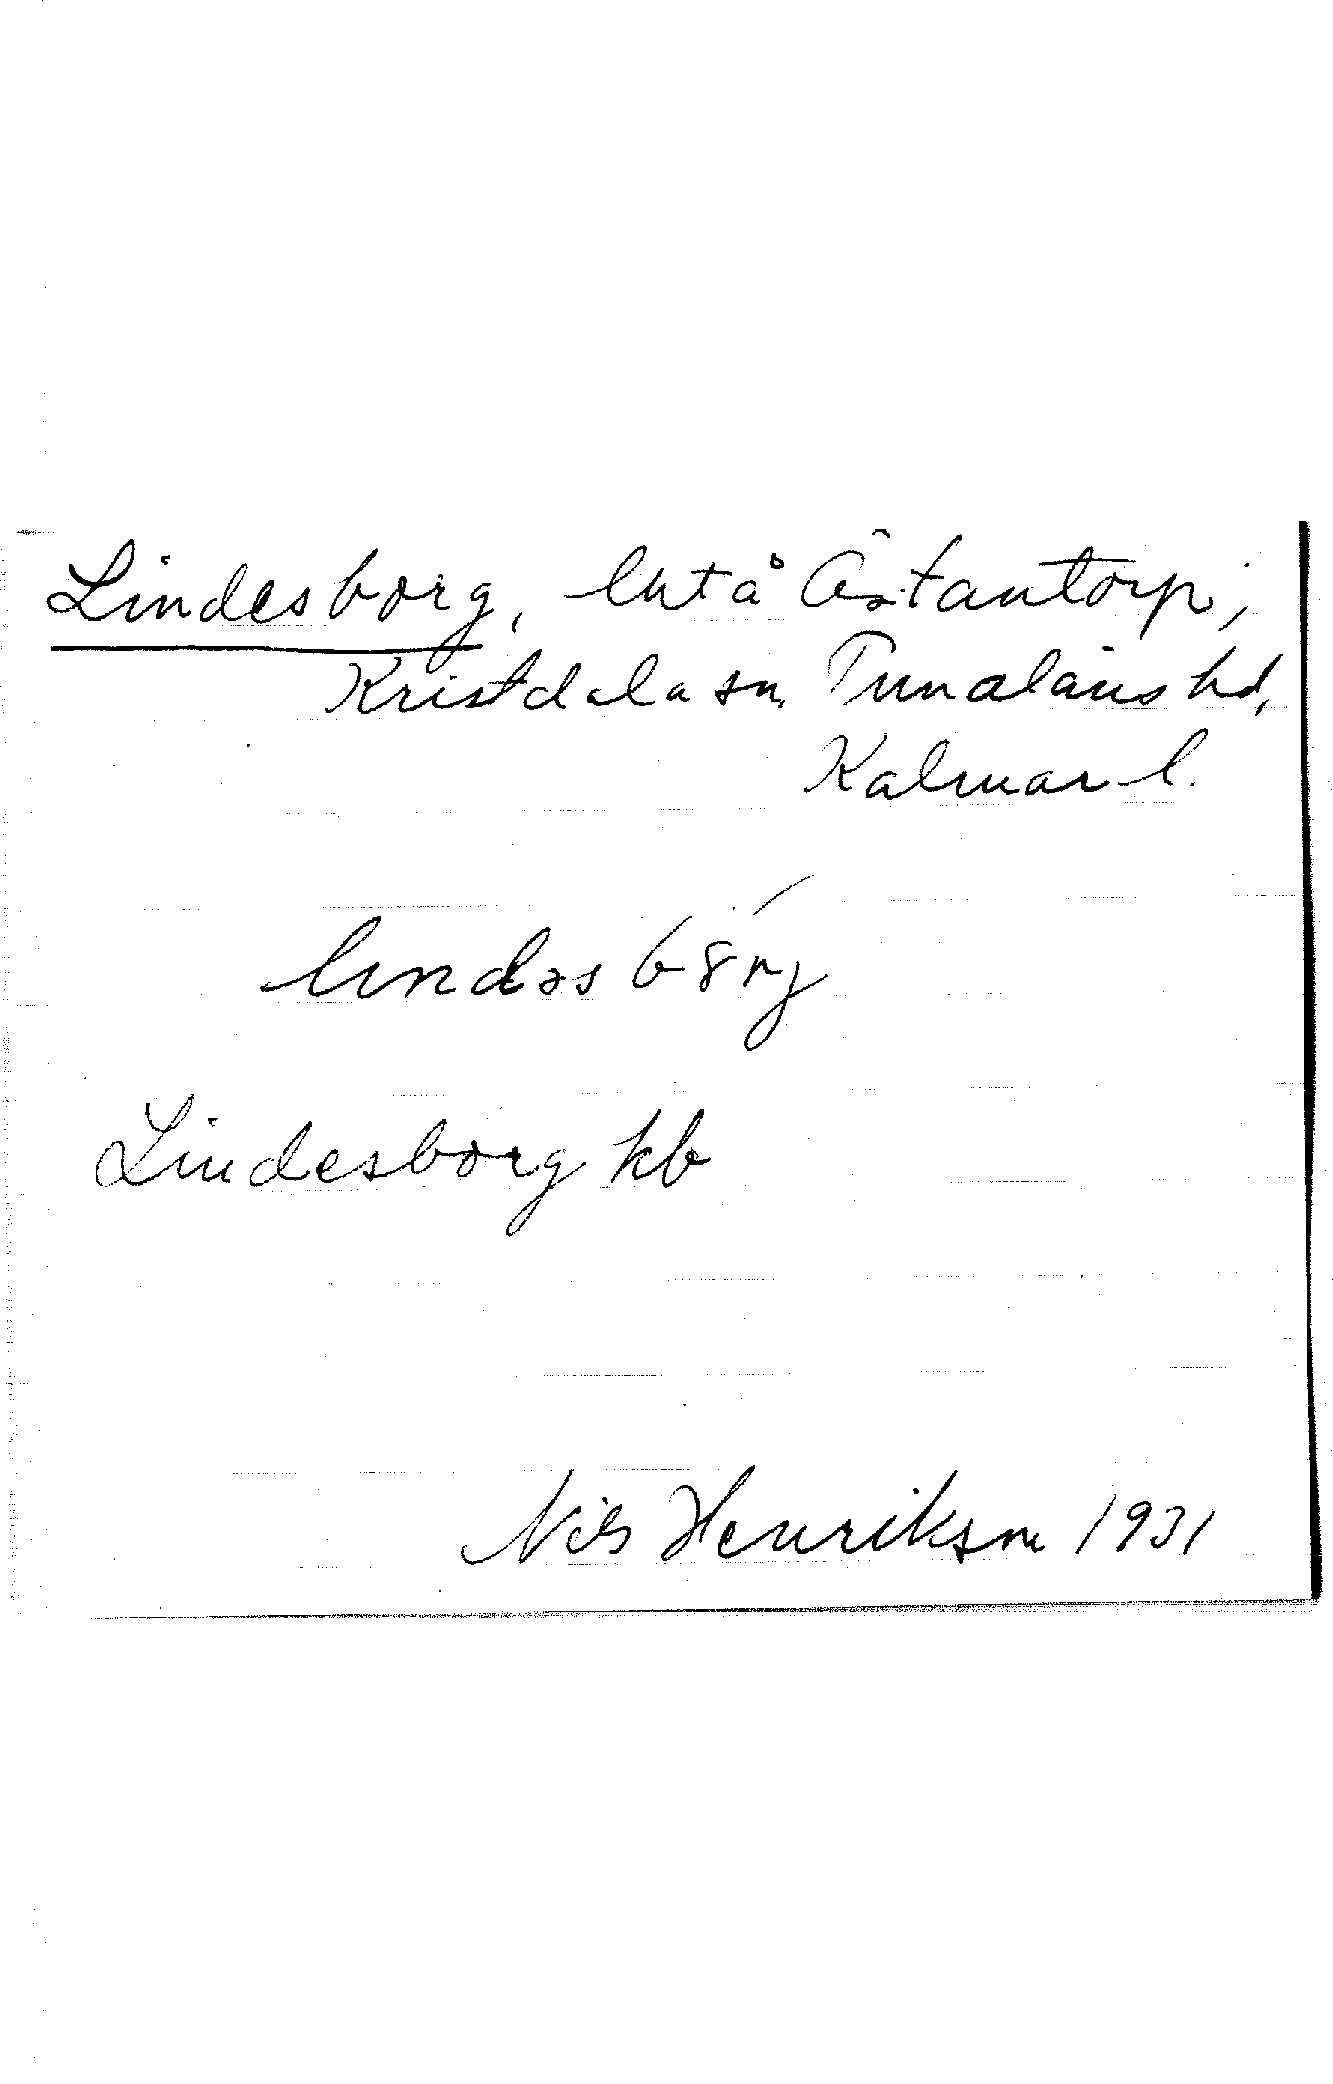 Lindesborg, lht å Östantorp,
Kristdala sn, Tunaläns hd,
Kalmar l.
Lindesborg kb
Nils Henrikson 1931